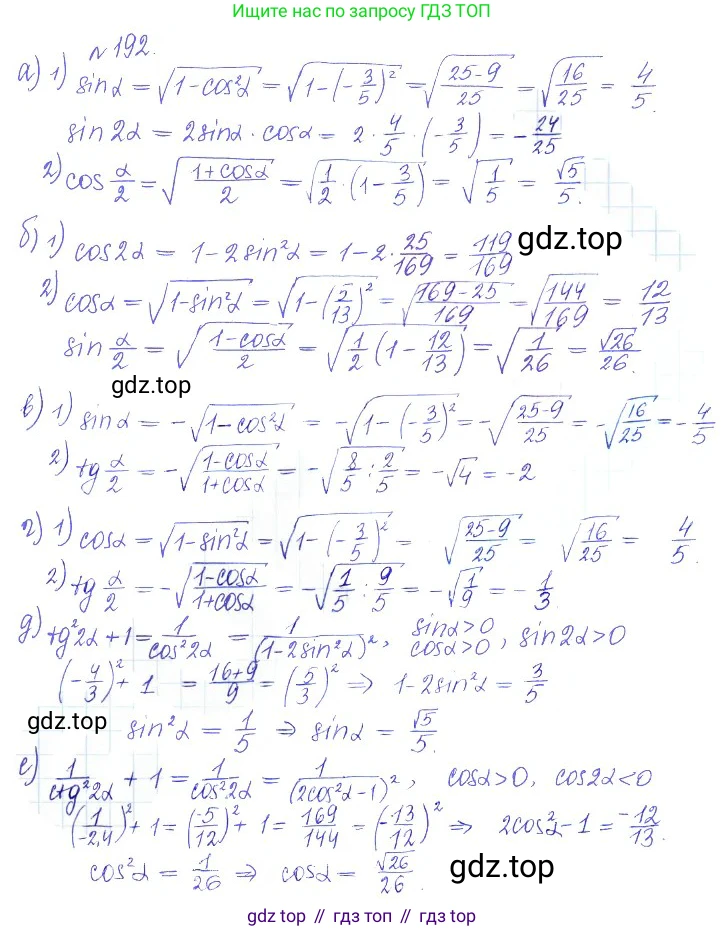 больше решебников по запросу ГДЗ ТОП
№192.
а) 1) sinα = √(1-cos²α) = √(1-(-3/5)²) = √((25-9)/25) = √(16/25) = 4/5.
sin2α = 2sinα · cosα = 2 · 4/5 · (-3/5) = -24/25
2) cos α/2 = √((1+cosα)/2) = √(1/2 · (1-3/5)) = √(1/5) = √5/5.
б) 1) cos2α = 1-2sin²α = 1-2·25/169 = 119/169
gdz.top
2) cosα = √(1-sin²α) = √(1-(5/13)²) = √((169-25)/169) = √(144/169) = 12/13
sin α/2 = √((1-cosα)/2) = √(1/2 (1-12/13)) = √(1/26) = √26/26.
gdz.top
в) 1) sinα = -√(1-cos²α) = -√(1-(-3/5)²) = -√((25-9)/25) = -√(16/25) = -4/5
2) tg α/2 = -√((1-cosα)/(1+cosα)) = -√(8/5 : 2/5) = -√4 = -2
г) 1) cosα = √(1-sin²α) = √(1-(-3/5)²) = √((25-9)/25) = √(16/25) = 4/5.
2) tg α/2 = -√((1-cosα)/(1+cosα)) = -√(1/5 : 9/5) = -√(1/9) = -1/3.
д) tg²2α + 1 = 1/cos²2α = 1/(1-2sin²α)², sinα>0 cosα>0, sin2α>0
(-4/3)² + 1 = (16+9)/9 = (5/3)² ⇒ 1-2sin²α = 3/5
gdz.top
sin²α = 1/5 ⇒ sinα = √5/5.
е) 1/ctg²2α + 1 = 1/cos²2α = 1/(2cos²α-1)², cosα>0, cos2α<0
(1/-2,4)² + 1 = (-5/12)² + 1 = 169/144 = (-13/12)² ⇒ 2cos²α-1 = -12/13.
cos²α = 1/26 ⇒ cosα = √26/26.
gdz.top
gdz top // гдз топ // gdz.top